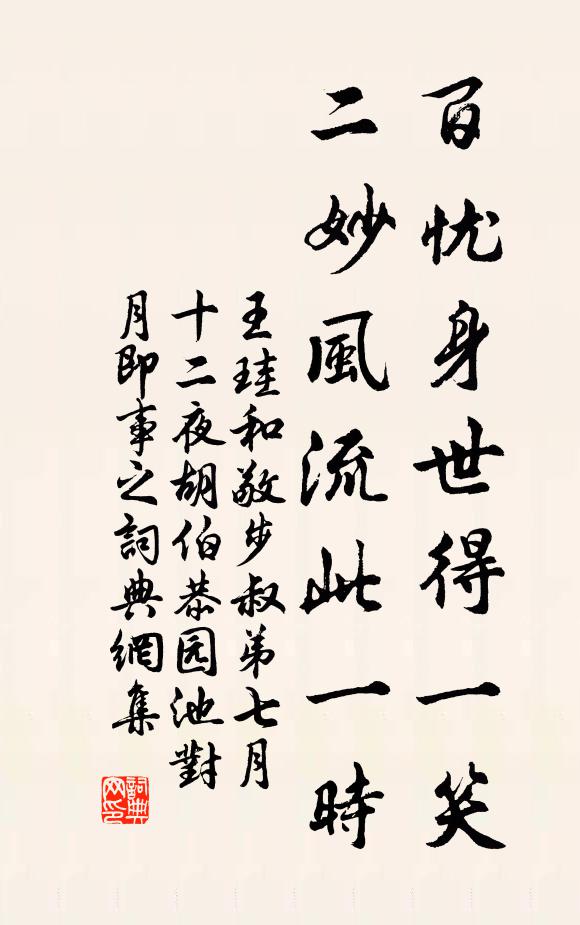 百忧身世得一笑
二妙風流此一時
王珪和敬步叔弟七月
十二夜胡伯恭园池對
月即事之詞典網集
詞典网印